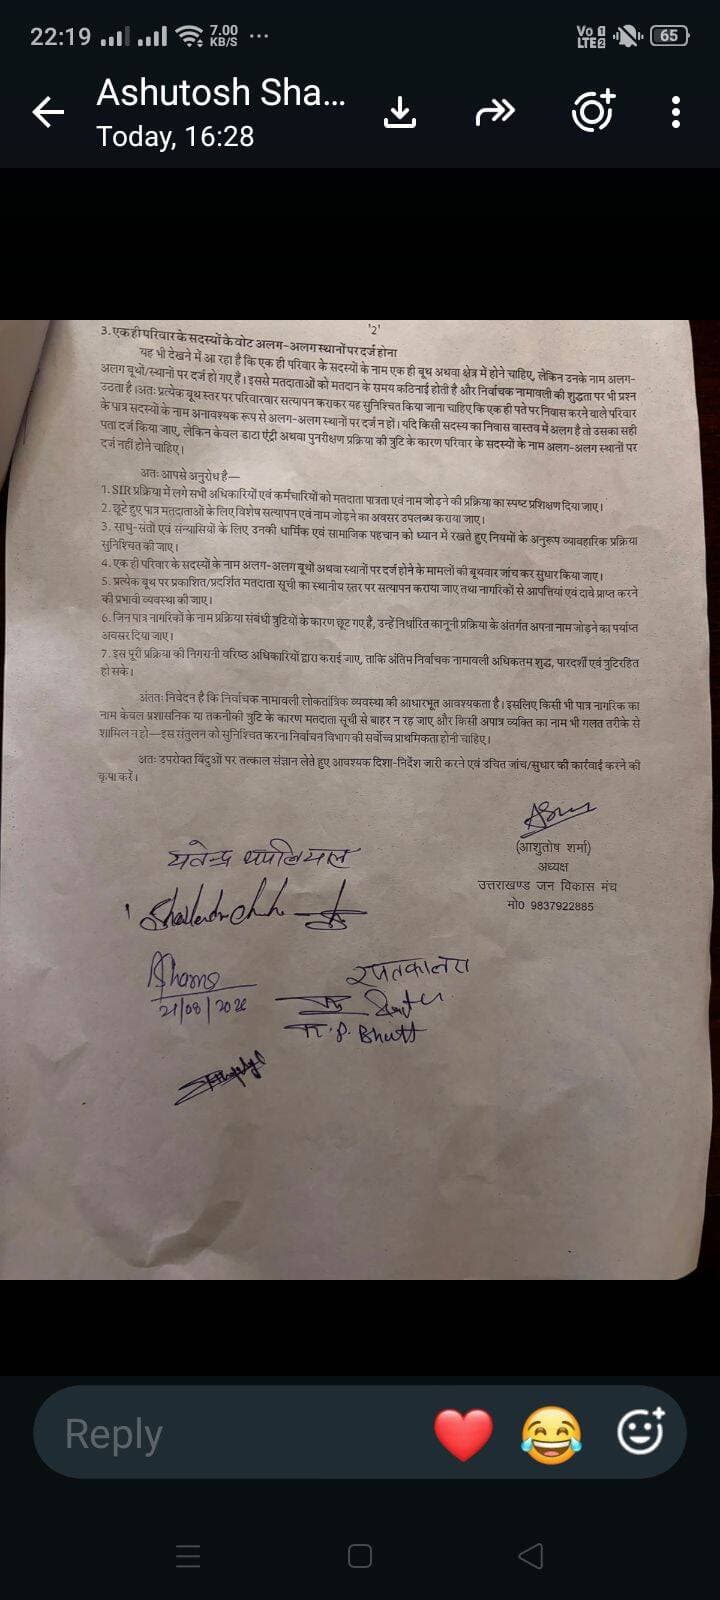 22:19
7.00 KB/S
Vo LTE2
65
Ashutosh Sha...
Today, 16:28
'2'
3. एक ही परिवार के सदस्यों के वोट अलग-अलग स्थानों पर दर्ज होना
यह भी देखने में आ रहा है कि एक ही परिवार के सदस्यों के नाम एक ही बूथ अथवा क्षेत्र में होने चाहिए, लेकिन उनके नाम अलग-
अलग बूथों/स्थानों पर दर्ज हो गए हैं। इससे मतदाताओं को मतदान के समय कठिनाई होती है और निर्वाचक नामावली की शुद्धता पर भी प्रश्न
उठता है।अतः प्रत्येक बूथ स्तर पर परिवारवार सत्यापन कराकर यह सुनिश्चित किया जाना चाहिए कि एक ही पते पर निवास करने वाले परिवार
के पात्र सदस्यों के नाम अनावश्यक रूप से अलग-अलग स्थानों पर दर्ज न हों। यदि किसी सदस्य का निवास वास्तव में अलग है तो उसका सही
पता दर्ज किया जाए, लेकिन केवल डाटा एंट्री अथवा पुनरीक्षण प्रक्रिया की त्रुटि के कारण परिवार के सदस्यों के नाम अलग-अलग स्थानों पर
दर्ज नहीं होने चाहिए।
अतः आपसे अनुरोध है—
1. SIR प्रक्रिया में लगे सभी अधिकारियों एवं कर्मचारियों को मतदाता पात्रता एवं नाम जोड़ने की प्रक्रिया का स्पष्ट प्रशिक्षण दिया जाए।
2. छूटे हुए पात्र मतदाताओं के लिए विशेष सत्यापन एवं नाम जोड़ने का अवसर उपलब्ध कराया जाए।
3. साधु-संतों एवं संन्यासियों के लिए उनकी धार्मिक एवं सामाजिक पहचान को ध्यान में रखते हुए नियमों के अनुरूप व्यावहारिक प्रक्रिया
सुनिश्चित की जाए।
4. एक ही परिवार के सदस्यों के नाम अलग-अलग बूथों अथवा स्थानों पर दर्ज होने के मामलों की बूथवार जांच कर सुधार किया जाए।
5. प्रत्येक बूथ पर प्रकाशित/प्रदर्शित मतदाता सूची का स्थानीय स्तर पर सत्यापन कराया जाए तथा नागरिकों से आपत्तियां एवं दावे प्राप्त करने
की प्रभावी व्यवस्था की जाए।
6. जिन पात्र नागरिकों के नाम प्रक्रिया संबंधी त्रुटियों के कारण छूट गए हैं, उन्हें निर्धारित कानूनी प्रक्रिया के अंतर्गत अपना नाम जोड़ने का पर्याप्त
अवसर दिया जाए।
7. इस पूरी प्रक्रिया की निगरानी वरिष्ठ अधिकारियों द्वारा कराई जाए, ताकि अंतिम निर्वाचक नामावली अधिकतम शुद्ध, पारदर्शी एवं त्रुटिरहित
हो सके।
अंततः निवेदन है कि निर्वाचक नामावली लोकतांत्रिक व्यवस्था की आधारभूत आवश्यकता है। इसलिए किसी भी पात्र नागरिक का
नाम केवल प्रशासनिक या तकनीकी त्रुटि के कारण मतदाता सूची से बाहर न रह जाए और किसी अपात्र व्यक्ति का नाम भी गलत तरीके से
शामिल न हो—इस संतुलन को सुनिश्चित करना निर्वाचन विभाग की सर्वोच्च प्राथमिकता होनी चाहिए।
अतः उपरोक्त बिंदुओं पर तत्काल संज्ञान लेते हुए आवश्यक दिशा-निर्देश जारी करने एवं उचित जांच/सुधार की कार्रवाई करने की
कृपा करें।
(आशुतोष शर्मा)
अध्यक्ष
उत्तराखण्ड जन विकास मंच
मो0 9837922885
यतेन्द्र थपलियाल
P. Bhatt
Reply